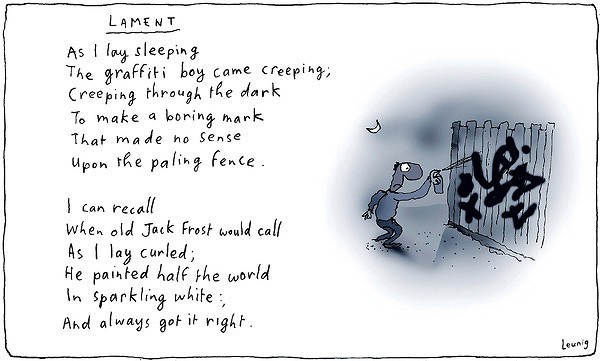 LAMENT
As I lay sleeping
The graffiti boy came creeping;
Creeping through the dark
To make a boring mark
That made no sense
Upon the paling fence.
I can recall
When old Jack Frost would call
As I lay curled;
He painted half the world
In sparkling white;
And always got it right.
Leunig